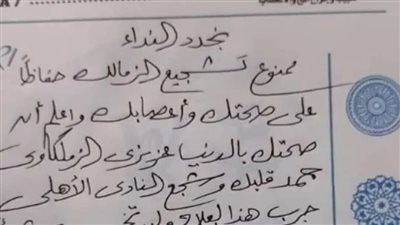 نجدد النداء
ممنوع تشجيع الزمالك حفاظًا
على صحتك وأعصابك واعلم أن
صحتك بالدنيا عزيزى الزملكاوى
قلبك وشجع النادى الأهلى
جرب هذا العلاج ولن